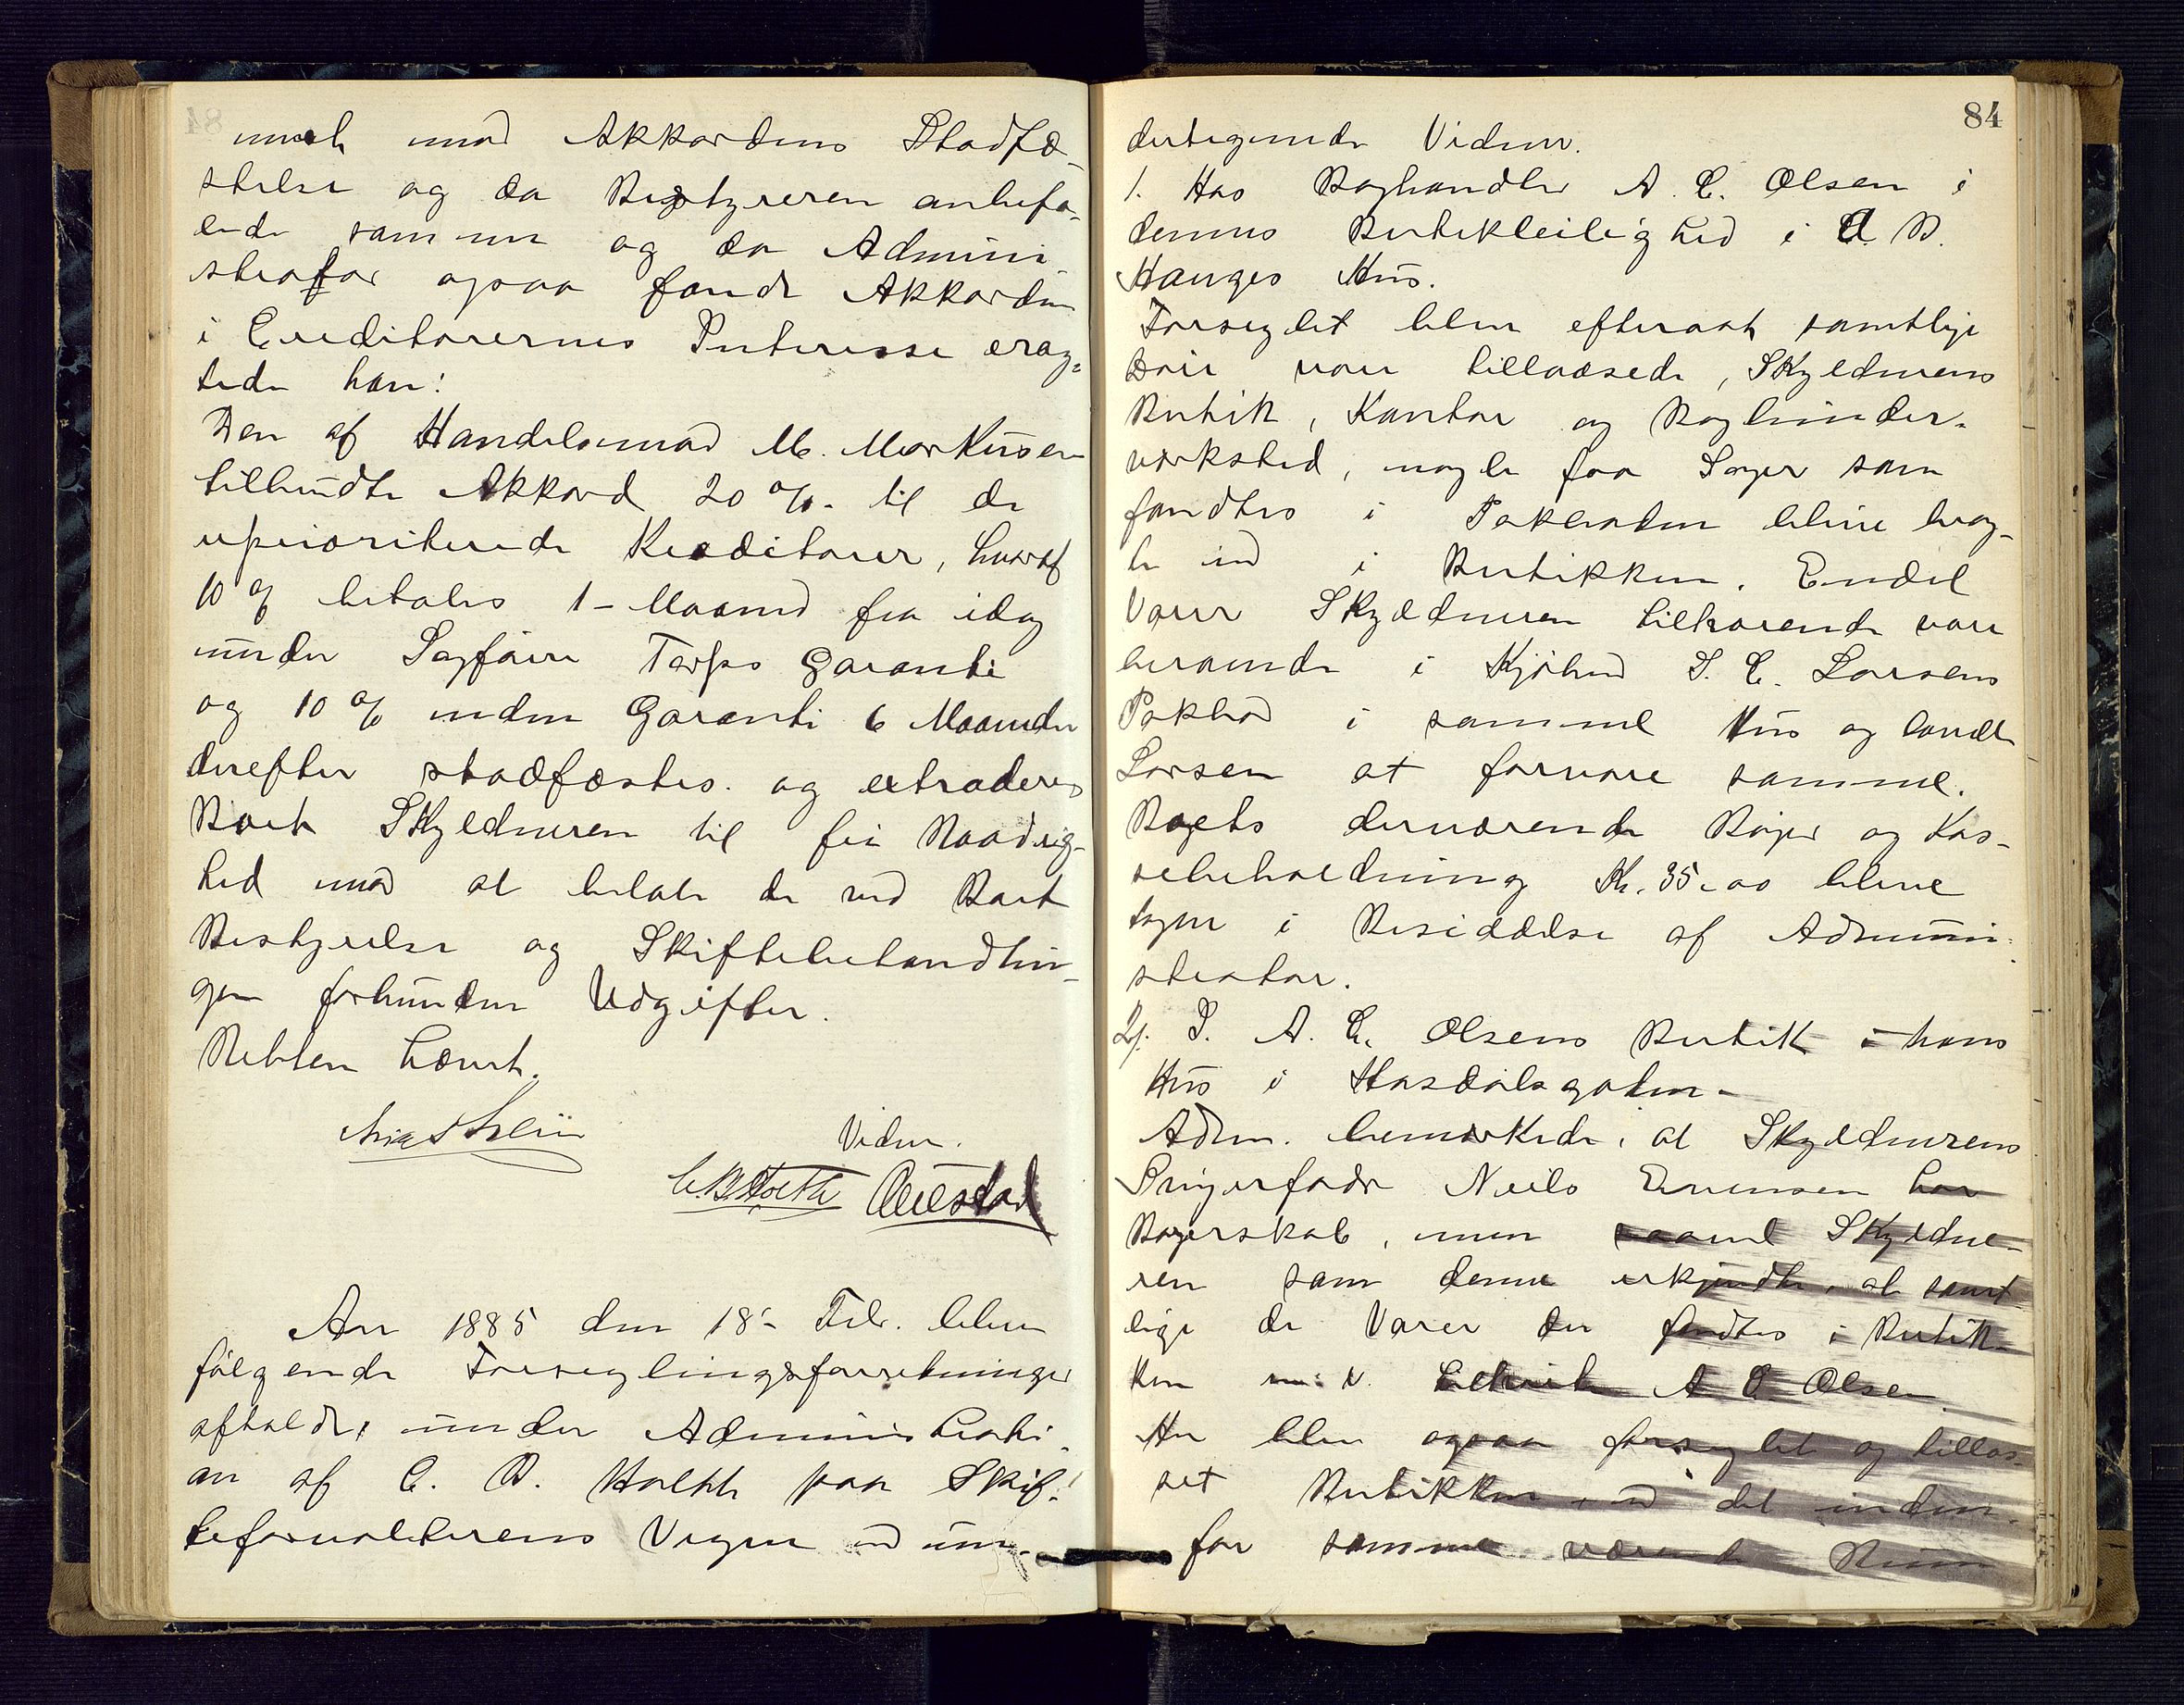 mod Akkordens Stadfæ-
stelse og da Bestyreren anbefa-
lede sammen og da Admini
strator ogsaa fandt Akkorden
i Creditorernes Interesse erag-
tede han:
Den af Handelsmand M. Markusen
tilbudte Akkord 20 %. til de
uprioriterede Kreditorer, hvoraf
10 % betales 1 Maaned fra idag
under Sagfører Tarps Garanti
og 10 % uden Garanti 6 Maaneder
derefter stadfæstes. og extraderes
Boet Skyldneren til fri Raadig-
hed mod at betale de ved Boet
Bestyrelse og Skiftebehandlin-
gen forbundne Udgifter.
Retten hævet.
Vidner.
C. B. Holth
Aar 1885 den 18. Febr. blev
følgende Forseglingsforretninger
afholdt, under Administrati
on af C. B. Holth paa Skif-
teforvalterens Vegne ved un-
84
dertegnede Vidner.
1. Hos Boghandler A. C. Olsen i
dennes Butikleilighed i B.
Hauges Hus.
Forseglet blev efterat samtlige
Døre vare tillaasede, Skyldnerens
Butik, Kontor og Bogbinder-
værksted, nogle faa Sager som
fandtes i Pakboden bleve brag-
te ind i Butikken. Endel
Varer Skyldneren tilhørende vare
beroende i Kjøbmd S. C. Larsens
Pakbod i samme Hus og lovede
Larsen at forvare samme.
Boets derværende Bøger og Kas-
sebeholdning Kr. 35.00 bleve
tagne i Besiddelse af Admini-
strator.
2. I A. C. Olsens Butik i hans
Hus i Hasdalsgaden
Adm. bemærkede, at Skyldnerens
Svigerfader Niels Evensen har
Borgerskab, men saavel Skyldne-
ren som denne erkjendte, at samt
lige de Varer der fandtes i Butik-
ken tilhørte A. C. Olsen
Her blev ogsaa forseglet og tillaa-
set Butikken, ved det inden-
for samme værende Rum